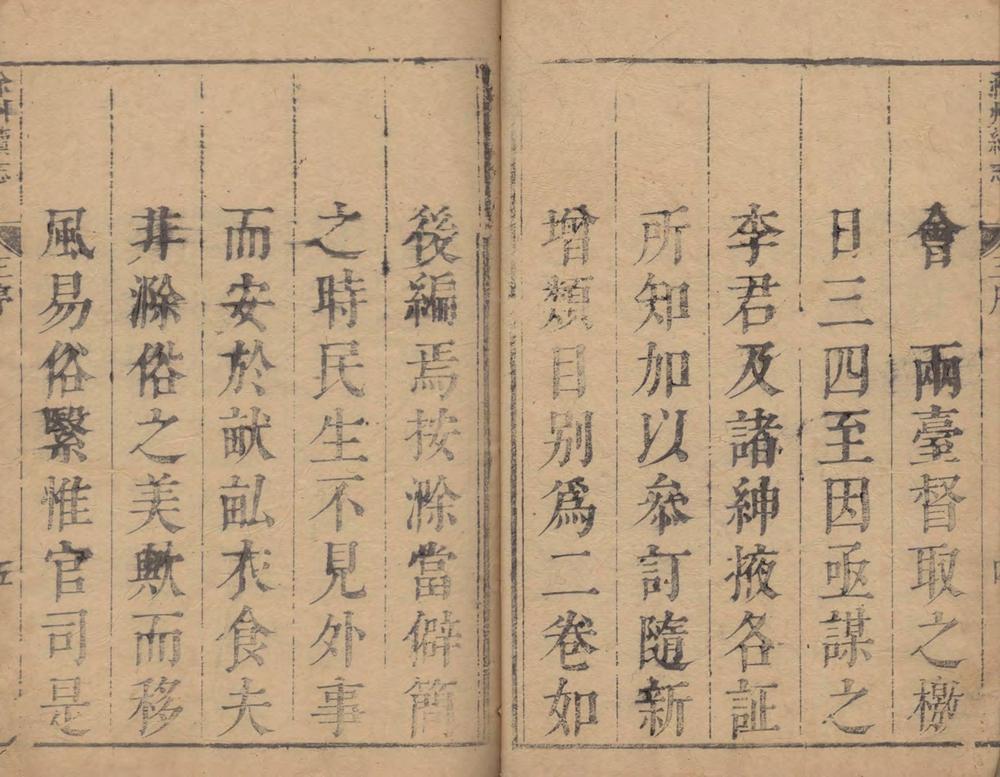 會 兩臺督取之檄
日三四至因亟謀之
李君及諸紳掖各証
所知加以叅訂隨新
增類目别爲二卷如
後編焉按滁當僻簡
之時民生不見外事
而安於畎畝衣食夫
非滁俗之美歟而移
風易俗繄惟官司是